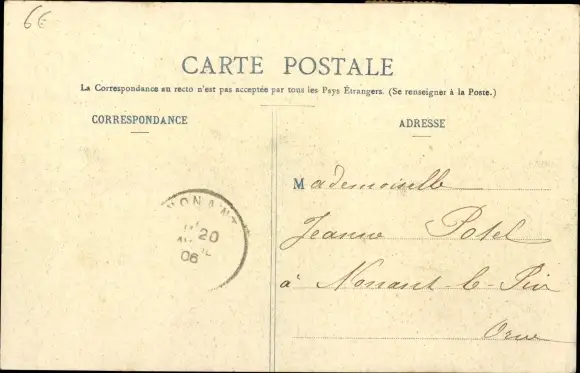 6€
CARTE POSTALE
La Correspondance au recto n'est pas acceptée par tous les Pays Étrangers. (Se renseigner à la Poste.)
CORRESPONDANCE
ADRESSE
Mademoiselle
Jeanne Potel
à Nonant-le-Pin
Orne
NONANT
20
06